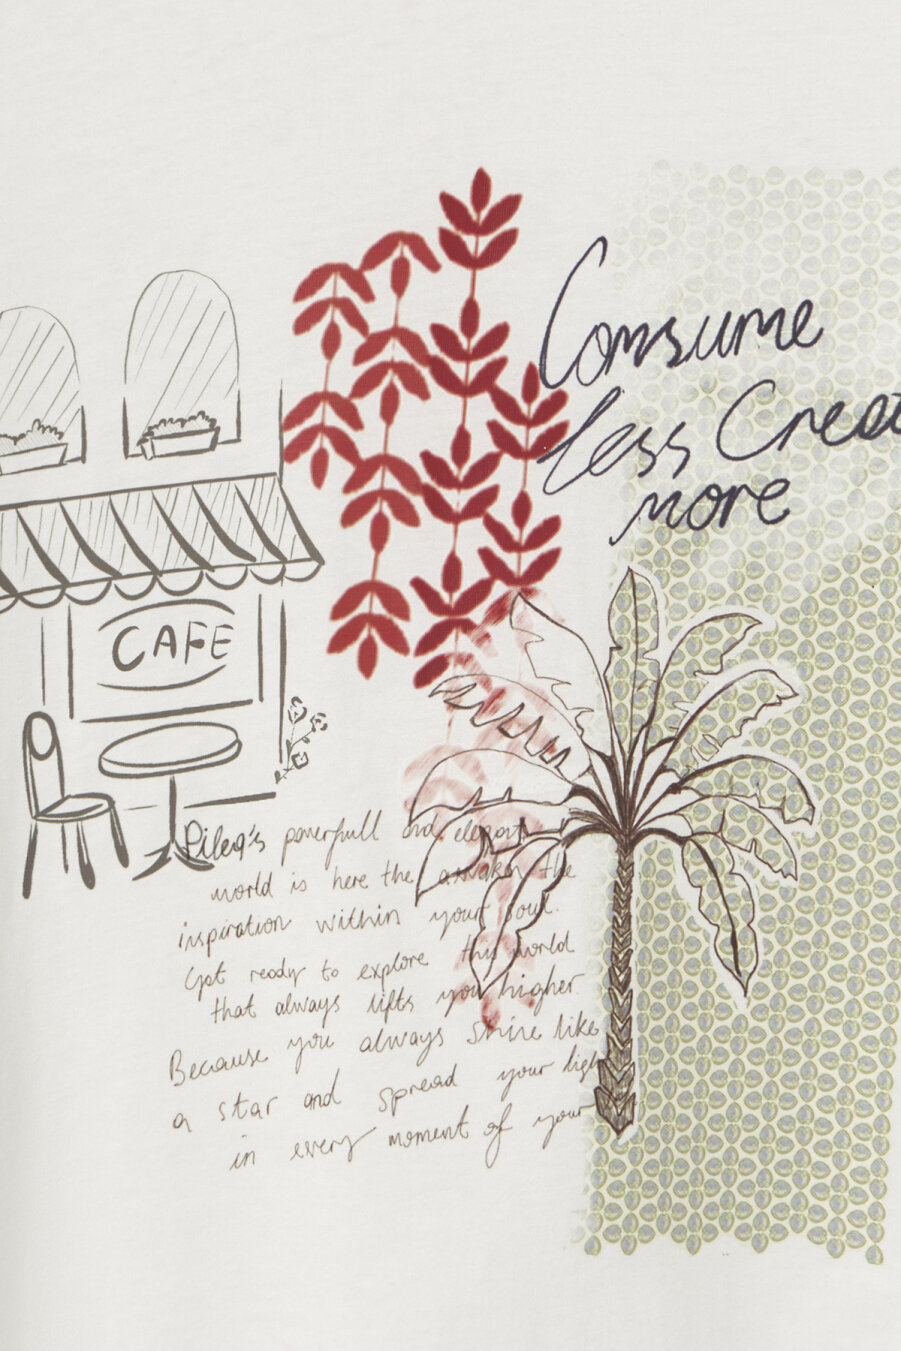 Consume
less Creat
more
CAFE
Pileq's powerfull and elegant
world is here the awaken the
inspiration within your soul.
Get ready to explore this world
that always lifts you higher.
Because you always shine like
a star and spread your light
in every moment of your